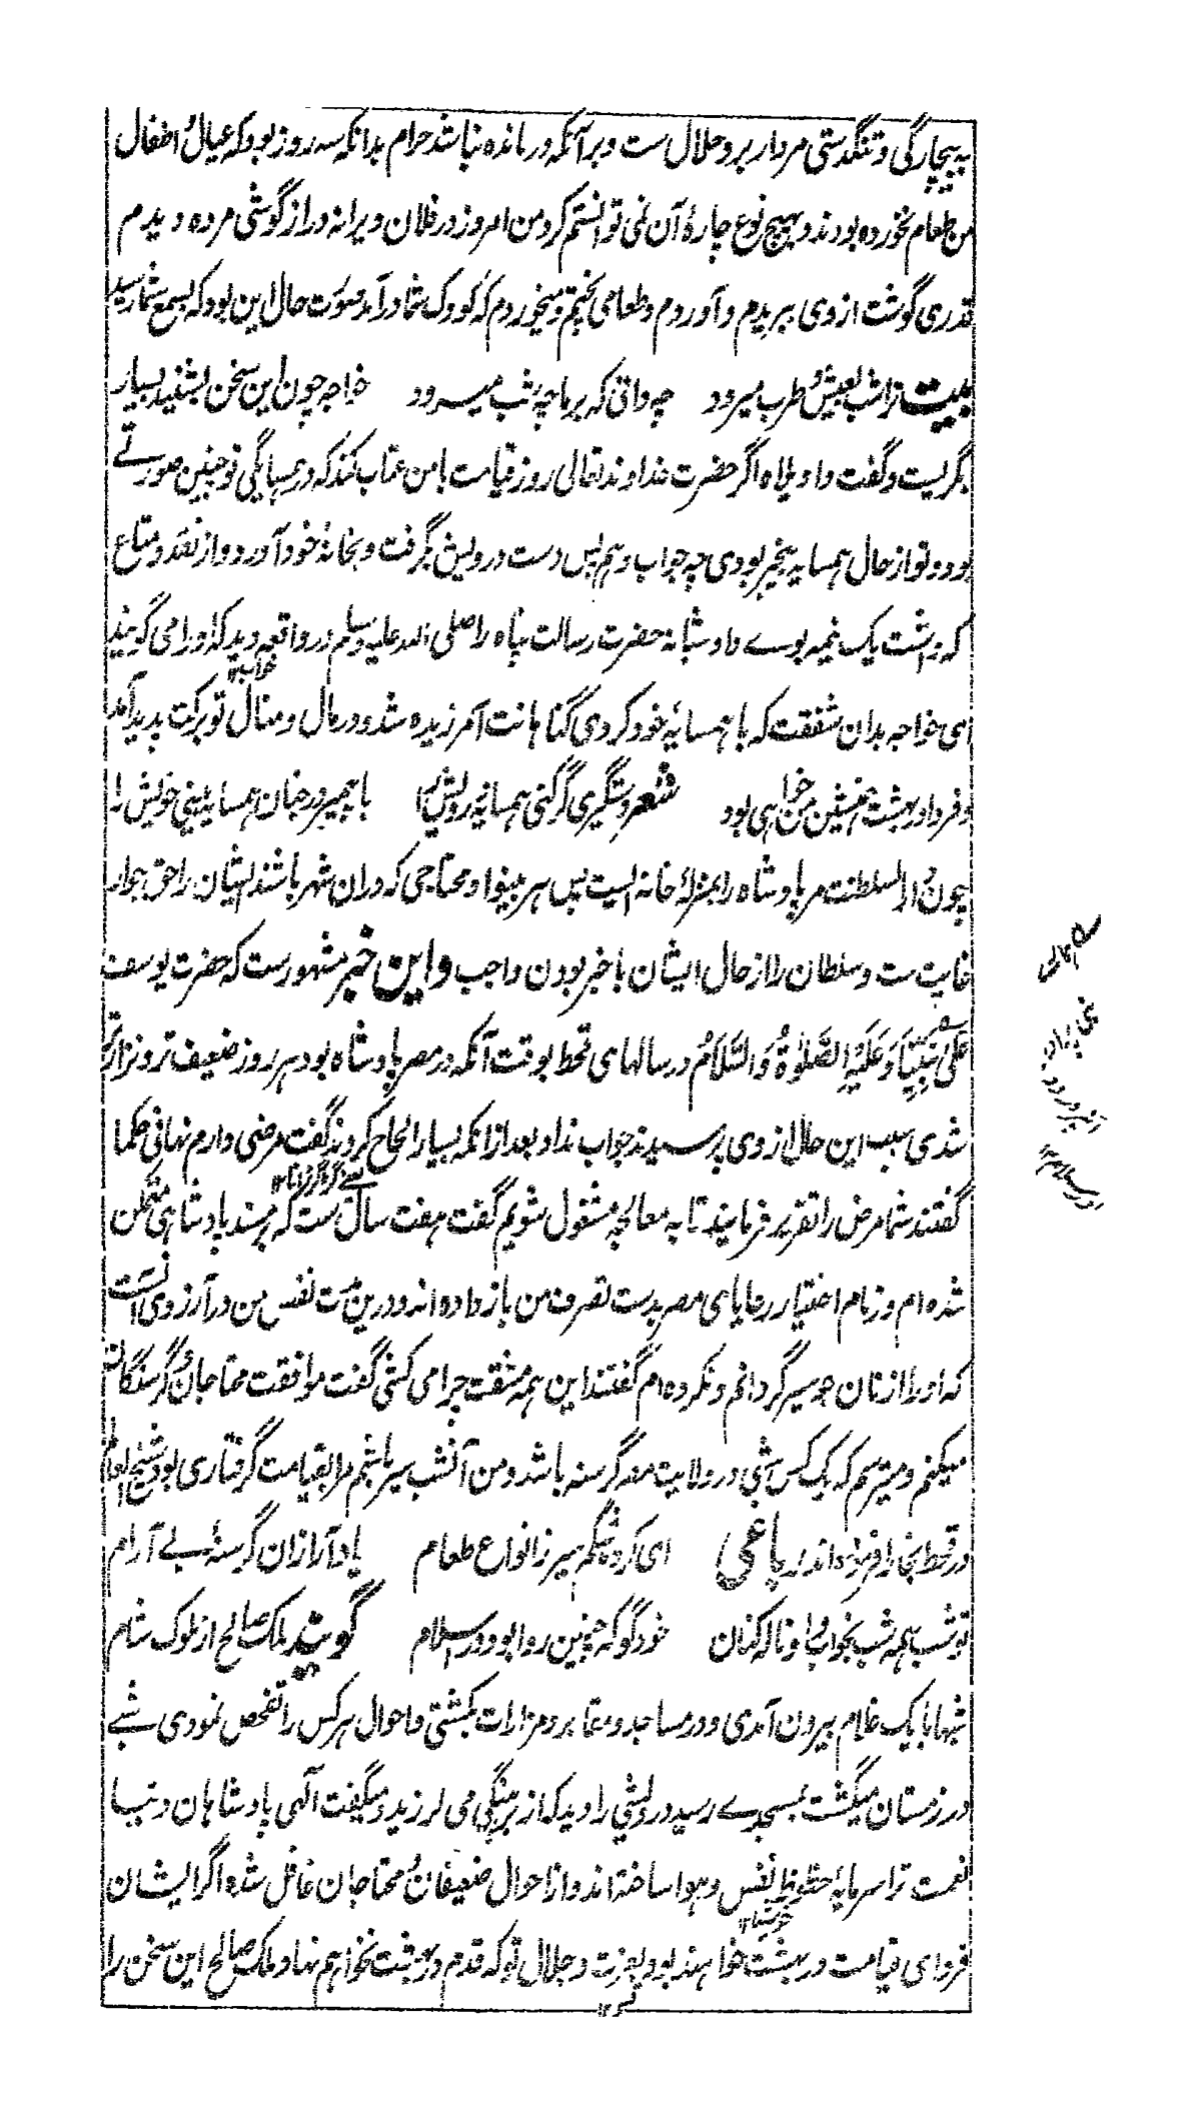 به بیچارگی و تنگدستی مردار برو حلال ست و بر آنکه درمانده نباشد حرام بدانکه سه روز بود که عیال و اطفال
من طعام نخورده بودند و بهیچ نوع چارهٔ آن نمی توانستم کرد من امروز در فلان ویرانه دراز گوشی مرده دیدم
قدری گوشت از وی ببریدم و آوردم و طعامی پختم و میخوردم که کودک شما درآمد صورت حال این بود که بسمع شما رسید
بیت ترا شب بعیش و طرب میرود چه دانی که بر ما چه شب میرود خواجه چون این سخن بشنید بسیار
بگریست و گفت واویلاه اگر حضرت خداوند تعالی روز قیامت با من عتاب کند که در همسایگی تو چنین صورتے
بود و تو از حال همسایه بیخبر بودی چه جواب دهم پس دست درویش بگرفت و بخانهٔ خود آورد و از نقد و متاع
که داشت یک نیمه بوے داد شبانه حضرت رسالت پناه را صلی الله علیه وسلم در واقعه دید که او را می گویند
خواب ۱۲
ای خواجه بدان شفقت که با همسایهٔ خود کردی گناهانت آمرزیده شد و در مال و منال تو برکت پدید آمد
و فردا در بهشت همنشین من خواهی بود شعر دستگیری گر کنی همسایهٔ درویش را با پیمبر در جنان همسایه بینی خویش را
چون دار السلطنت مر پادشاه را بمنزلهٔ خانه ایست پس هر بینوا و محتاجی که دران شهر باشند ایشان را حق جوار
ثابت ست و سلطان را از حال ایشان با خبر بودن واجب و این خبر مشهورست که حضرت یوسف
عَلیٰ نَبِیِّنَا وَعَلَیْهِ الصَّلوٰةُ وَالسَّلَامُ در سالهای قحط بوقت آنکه در مصر پادشاه بود هر روز ضعیف تر و نزار تر
شدی سبب این حال از وی پرسیدند جواب نداد بعد ازانکه بسیار الحاح کردند گفت مرضی دارم نهانی حکما
گفتند شما مرض را تقریر فرمایند تا به معالجه مشغول شویم گفت هفت سال ست که بر مسند پادشاهی متمکن
شده ام و زمام اختیار رعایای مصر بدست تصرف من باز داده اند و درین مدت نفس من در آرزوی آنست
که او را از نان جو سیر گردانم و نکرده ام گفتند این همه مشقت چرا می کشی گفت موافقت محتاجان و گرسنگان
میکنم و میترسم که یک کس شبی در ولایت من گرسنه باشد و من آنشب سیر باشم مرا بقیامت گرفتاری بود شیخ العالم
در قحط بخارا فرموده اند رباعی ای کرده شکم سیر ز انواع طعام یاد آر ازان گرسنهٔ بے آرام
تو شب همه شب بخواب و او ناله کنان خود گو که چنین روا بود در اسلام گویند ملک صالح از ملوک شام
شبها با یک غلام بیرون آمدی و در مساجد و مقابر و مزارات بگشتی و احوال هر کس را تفحص نمودی شبے
در زمستان میگشت بمسجدے رسید درویشی را دید که از برهنگی می لرزید و میگفت الهی پادشاهان دنیا
نعمت ترا سرمایه حظوظ نفس و هوا ساخته اند و از احوال ضعیفان و محتاجان غافل شده اگر ایشان
فردای قیامت در بهشت خواهند بود بعزت و جلال تو که قدم در بهشت نخواهم نهاد ملک صالح این سخن را